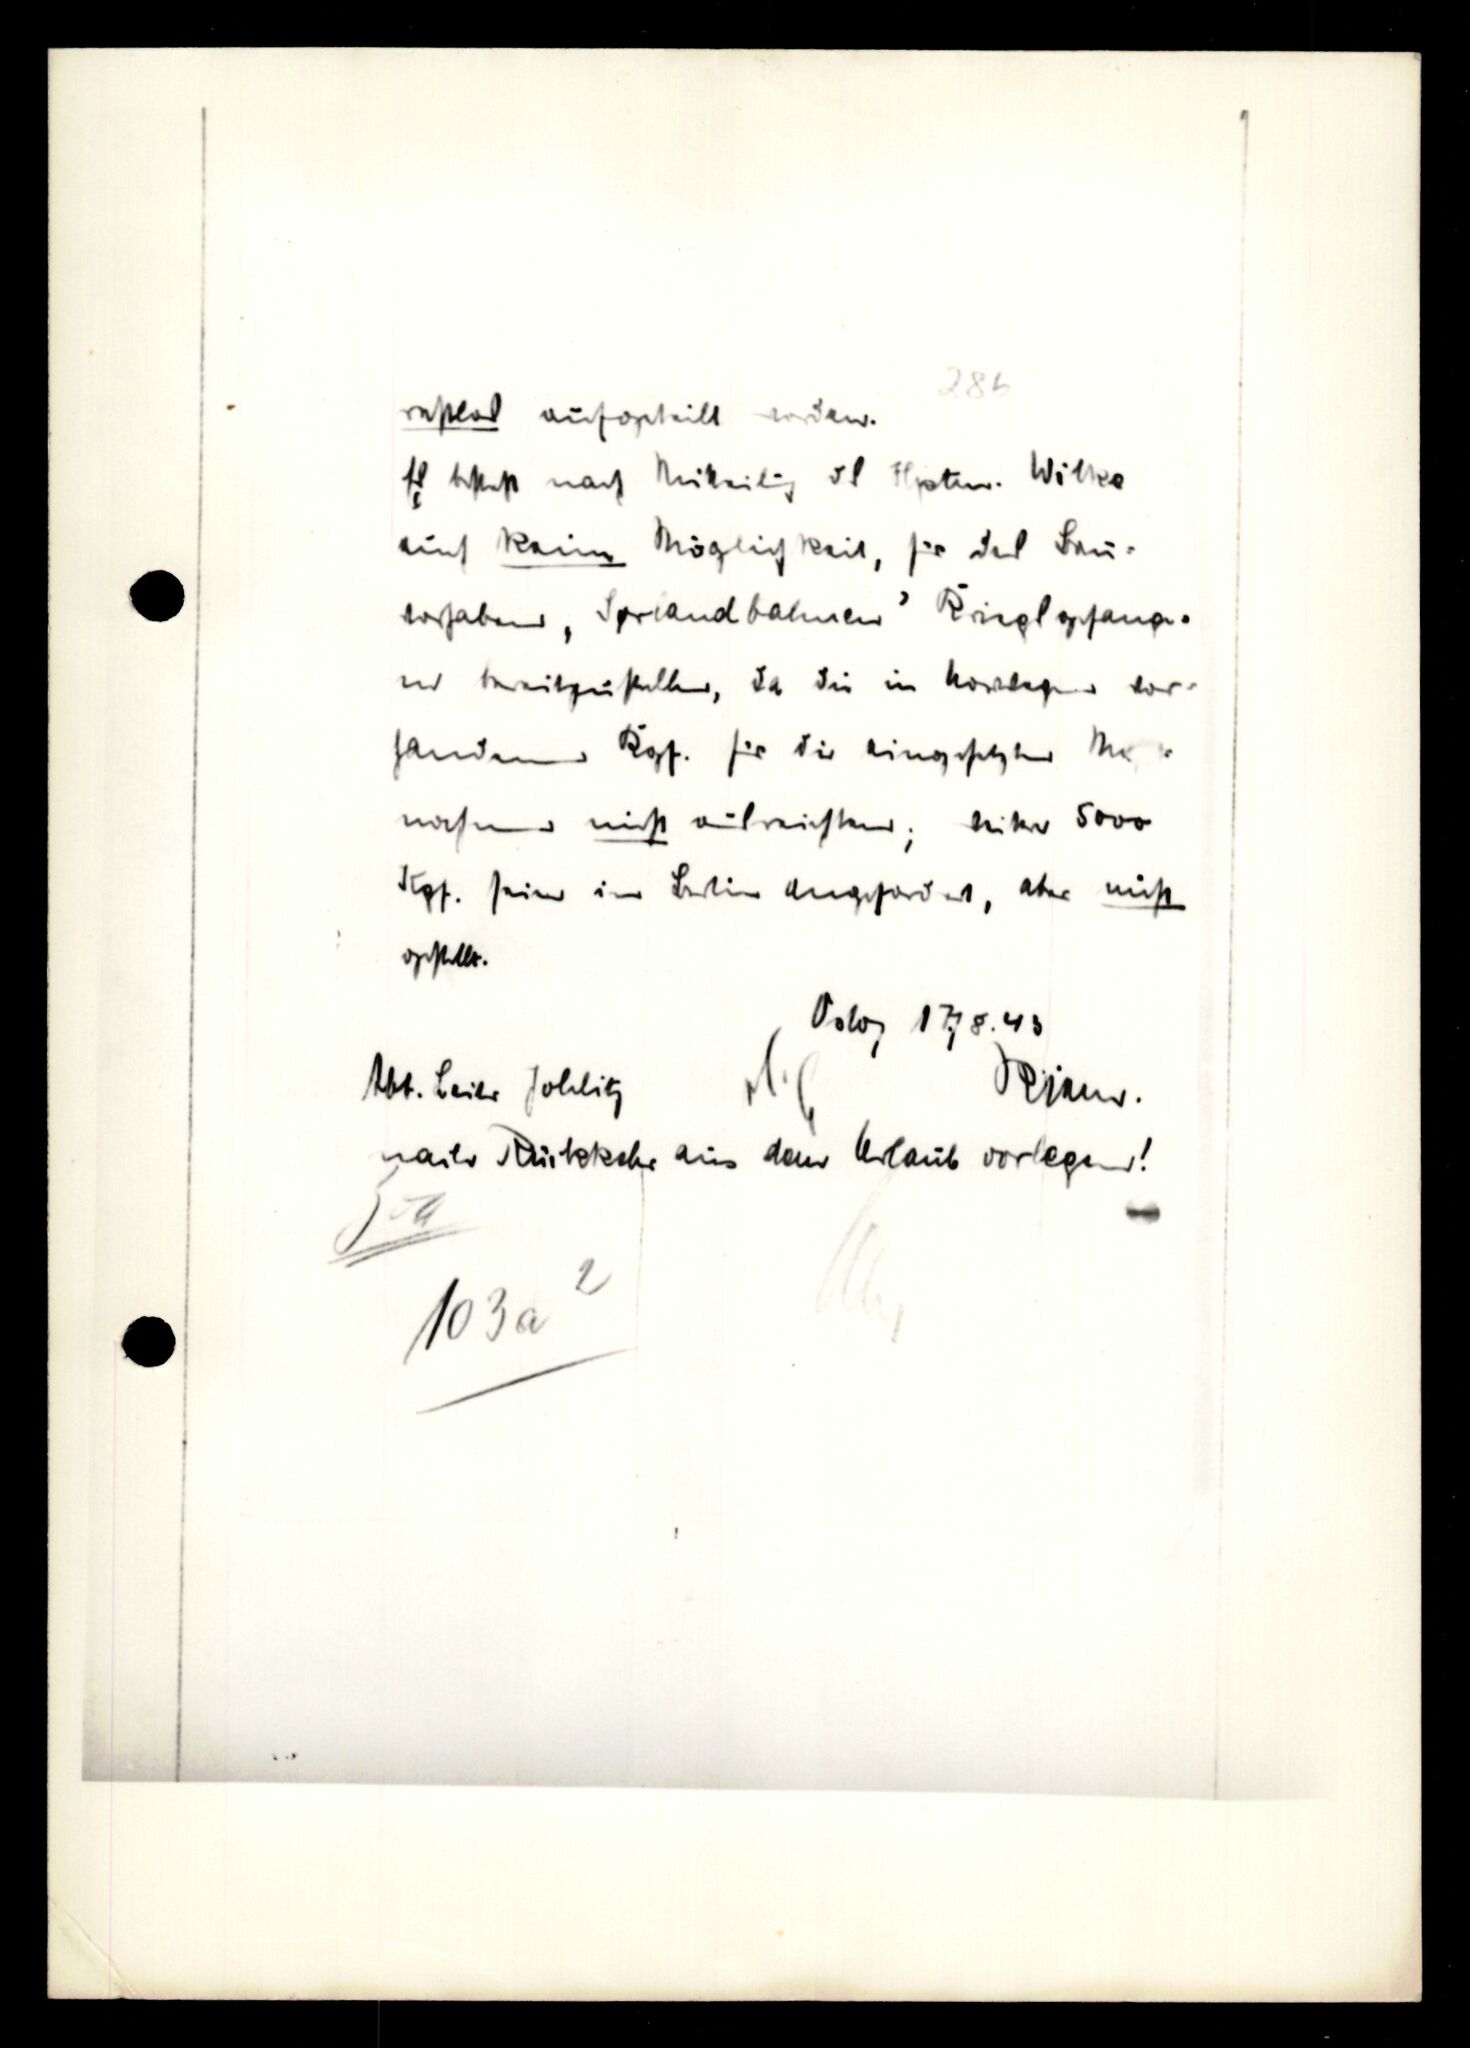 286
restlos aufgeteilt worden.
Es besteht nach Mitteilung des Hptm. Wilke
auch keine Möglichkeit, für das Bau-
vorhaben „Sørlandbahnen" Kriegsgefange-
ne bereitzustellen, da die in Norwegen vor-
handenen Kgf. für die eingesetzten Maß-
nahmen nicht ausreichten; weitere 5000
Kgf. seien in Berlin angefordert, aber nicht
gestellt.
Oslo, 17.8.43
Abt. Leiter
nach Rückkehr aus dem Urlaub vorlegen!
103a²